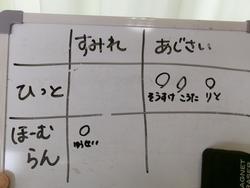 すみれ あじさい
ひっと
そうすけ こうた りと
ほーむ
らん
ゆうせい
MAGNET